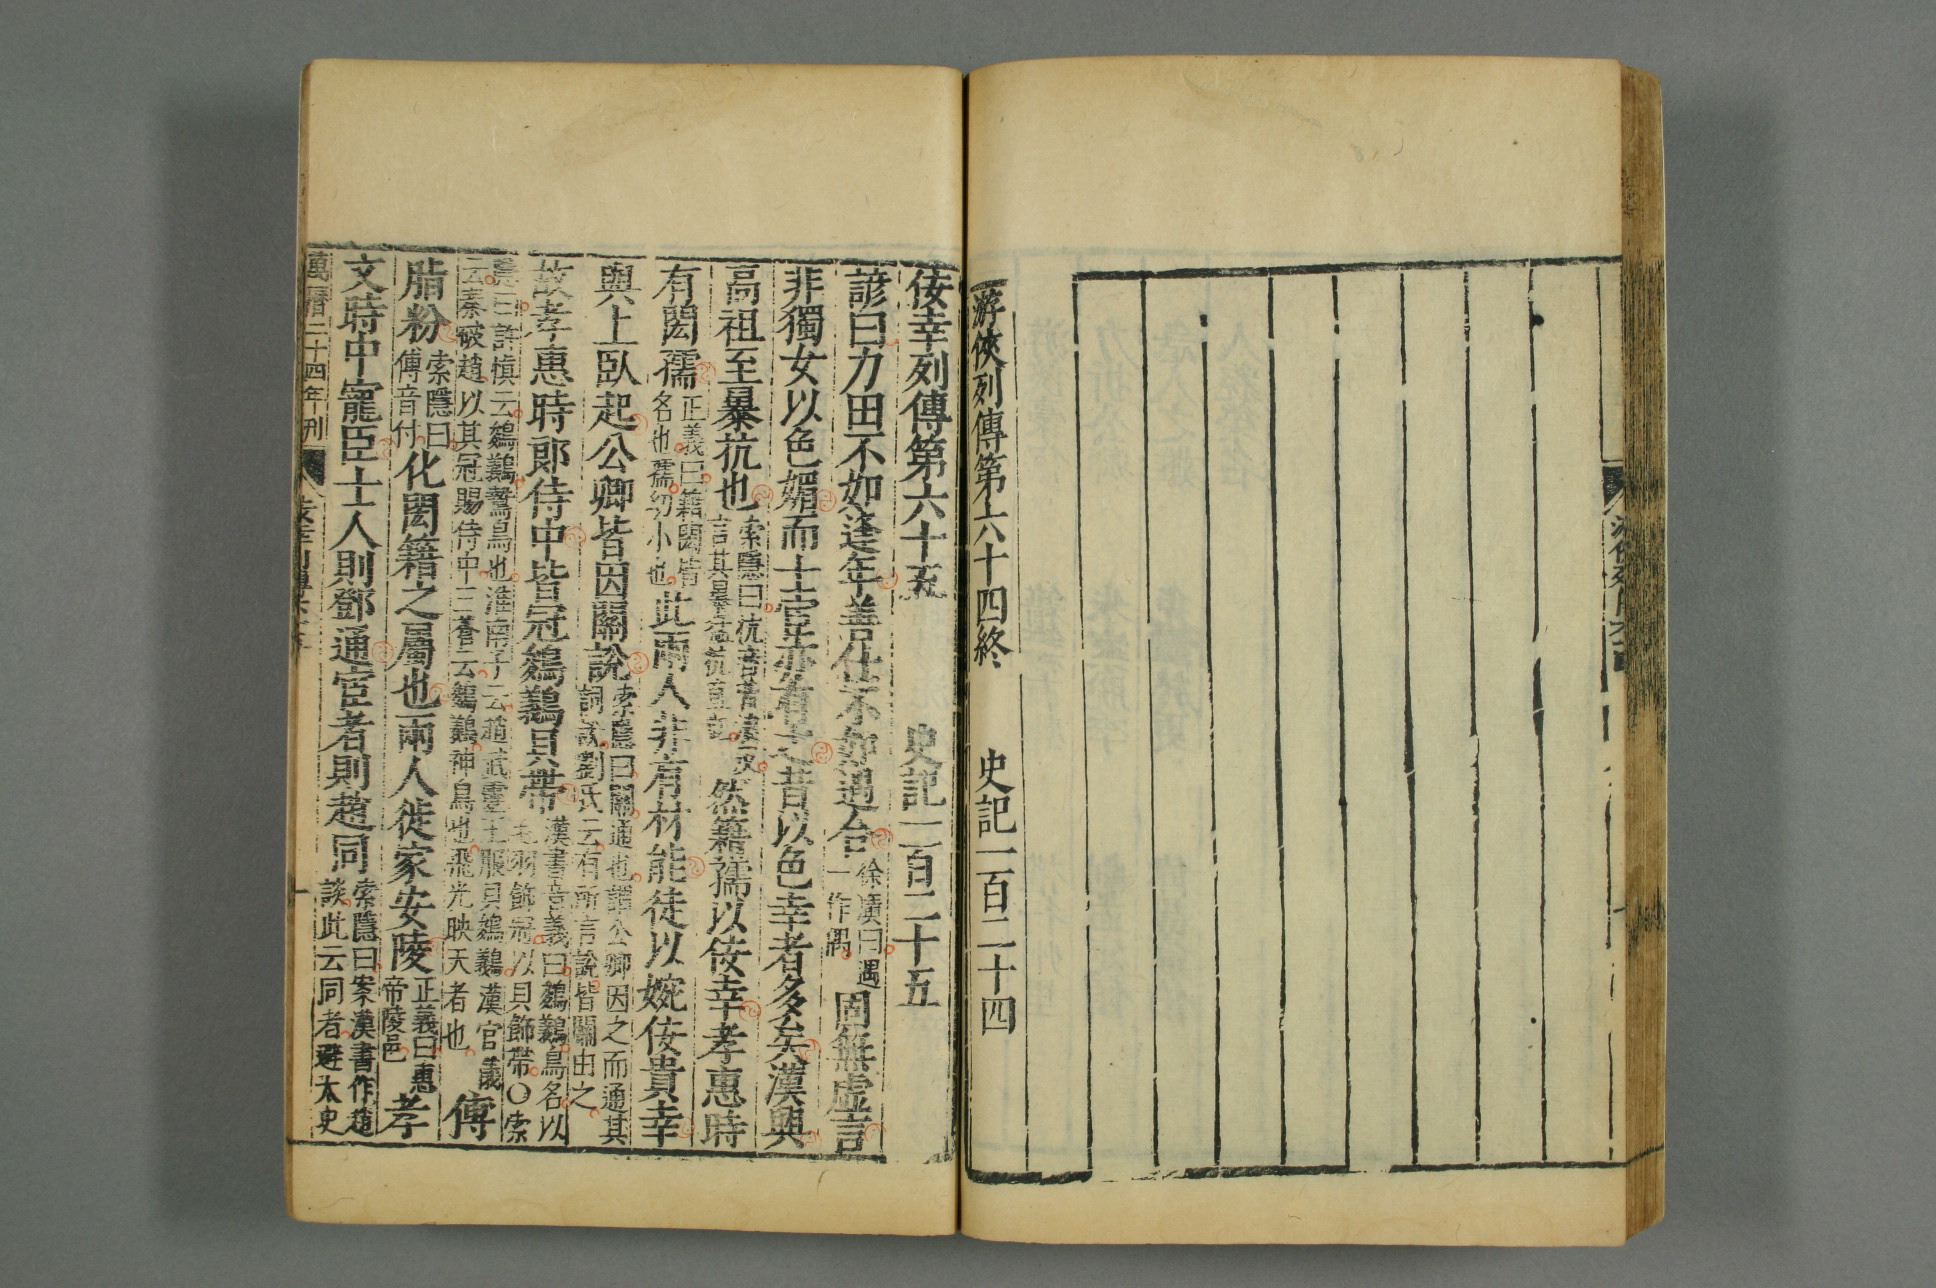 游俠列傳第六十四終　史記一百二十四
佞幸列傳第六十五　史記一百二十五
諺曰力田不如逢年善仕不如遇合徐廣曰遇一作偶固無虛言
非獨女以色媚而士宦亦有之昔以色幸者多矣漢興
高祖至暴抗也索隱曰抗音苦浪反言其暴猛抗直然籍孺以佞幸孝惠時
有閎孺正義曰籍閎皆名也孺幼小也此兩人非有材能徒以婉佞貴幸
與上臥起公卿皆因關說索隱曰關通也謂公卿因之而通其詞說劉氏云有所言說皆關由之
故孝惠時郎侍中皆冠鵕鸃貝帶漢書音義曰鵕鸃鳥名以毛羽飾冠以貝飾帶○索
隱曰許慎云鵕鸃鷩鳥也淮南子云趙武靈王服貝鵕鸃漢官儀云秦破趙以其冠賜侍中三蒼云鵕鸃神鳥也飛光映天者也傅
脂粉索隱曰傅音付化閎籍之屬也兩人徙家安陵正義曰惠帝陵邑孝
文時中寵臣士人則鄧通宦者則趙同索隱曰案漢書作趙談此云同者避太史
萬曆二十四年刊　佞幸列傳六十五　一